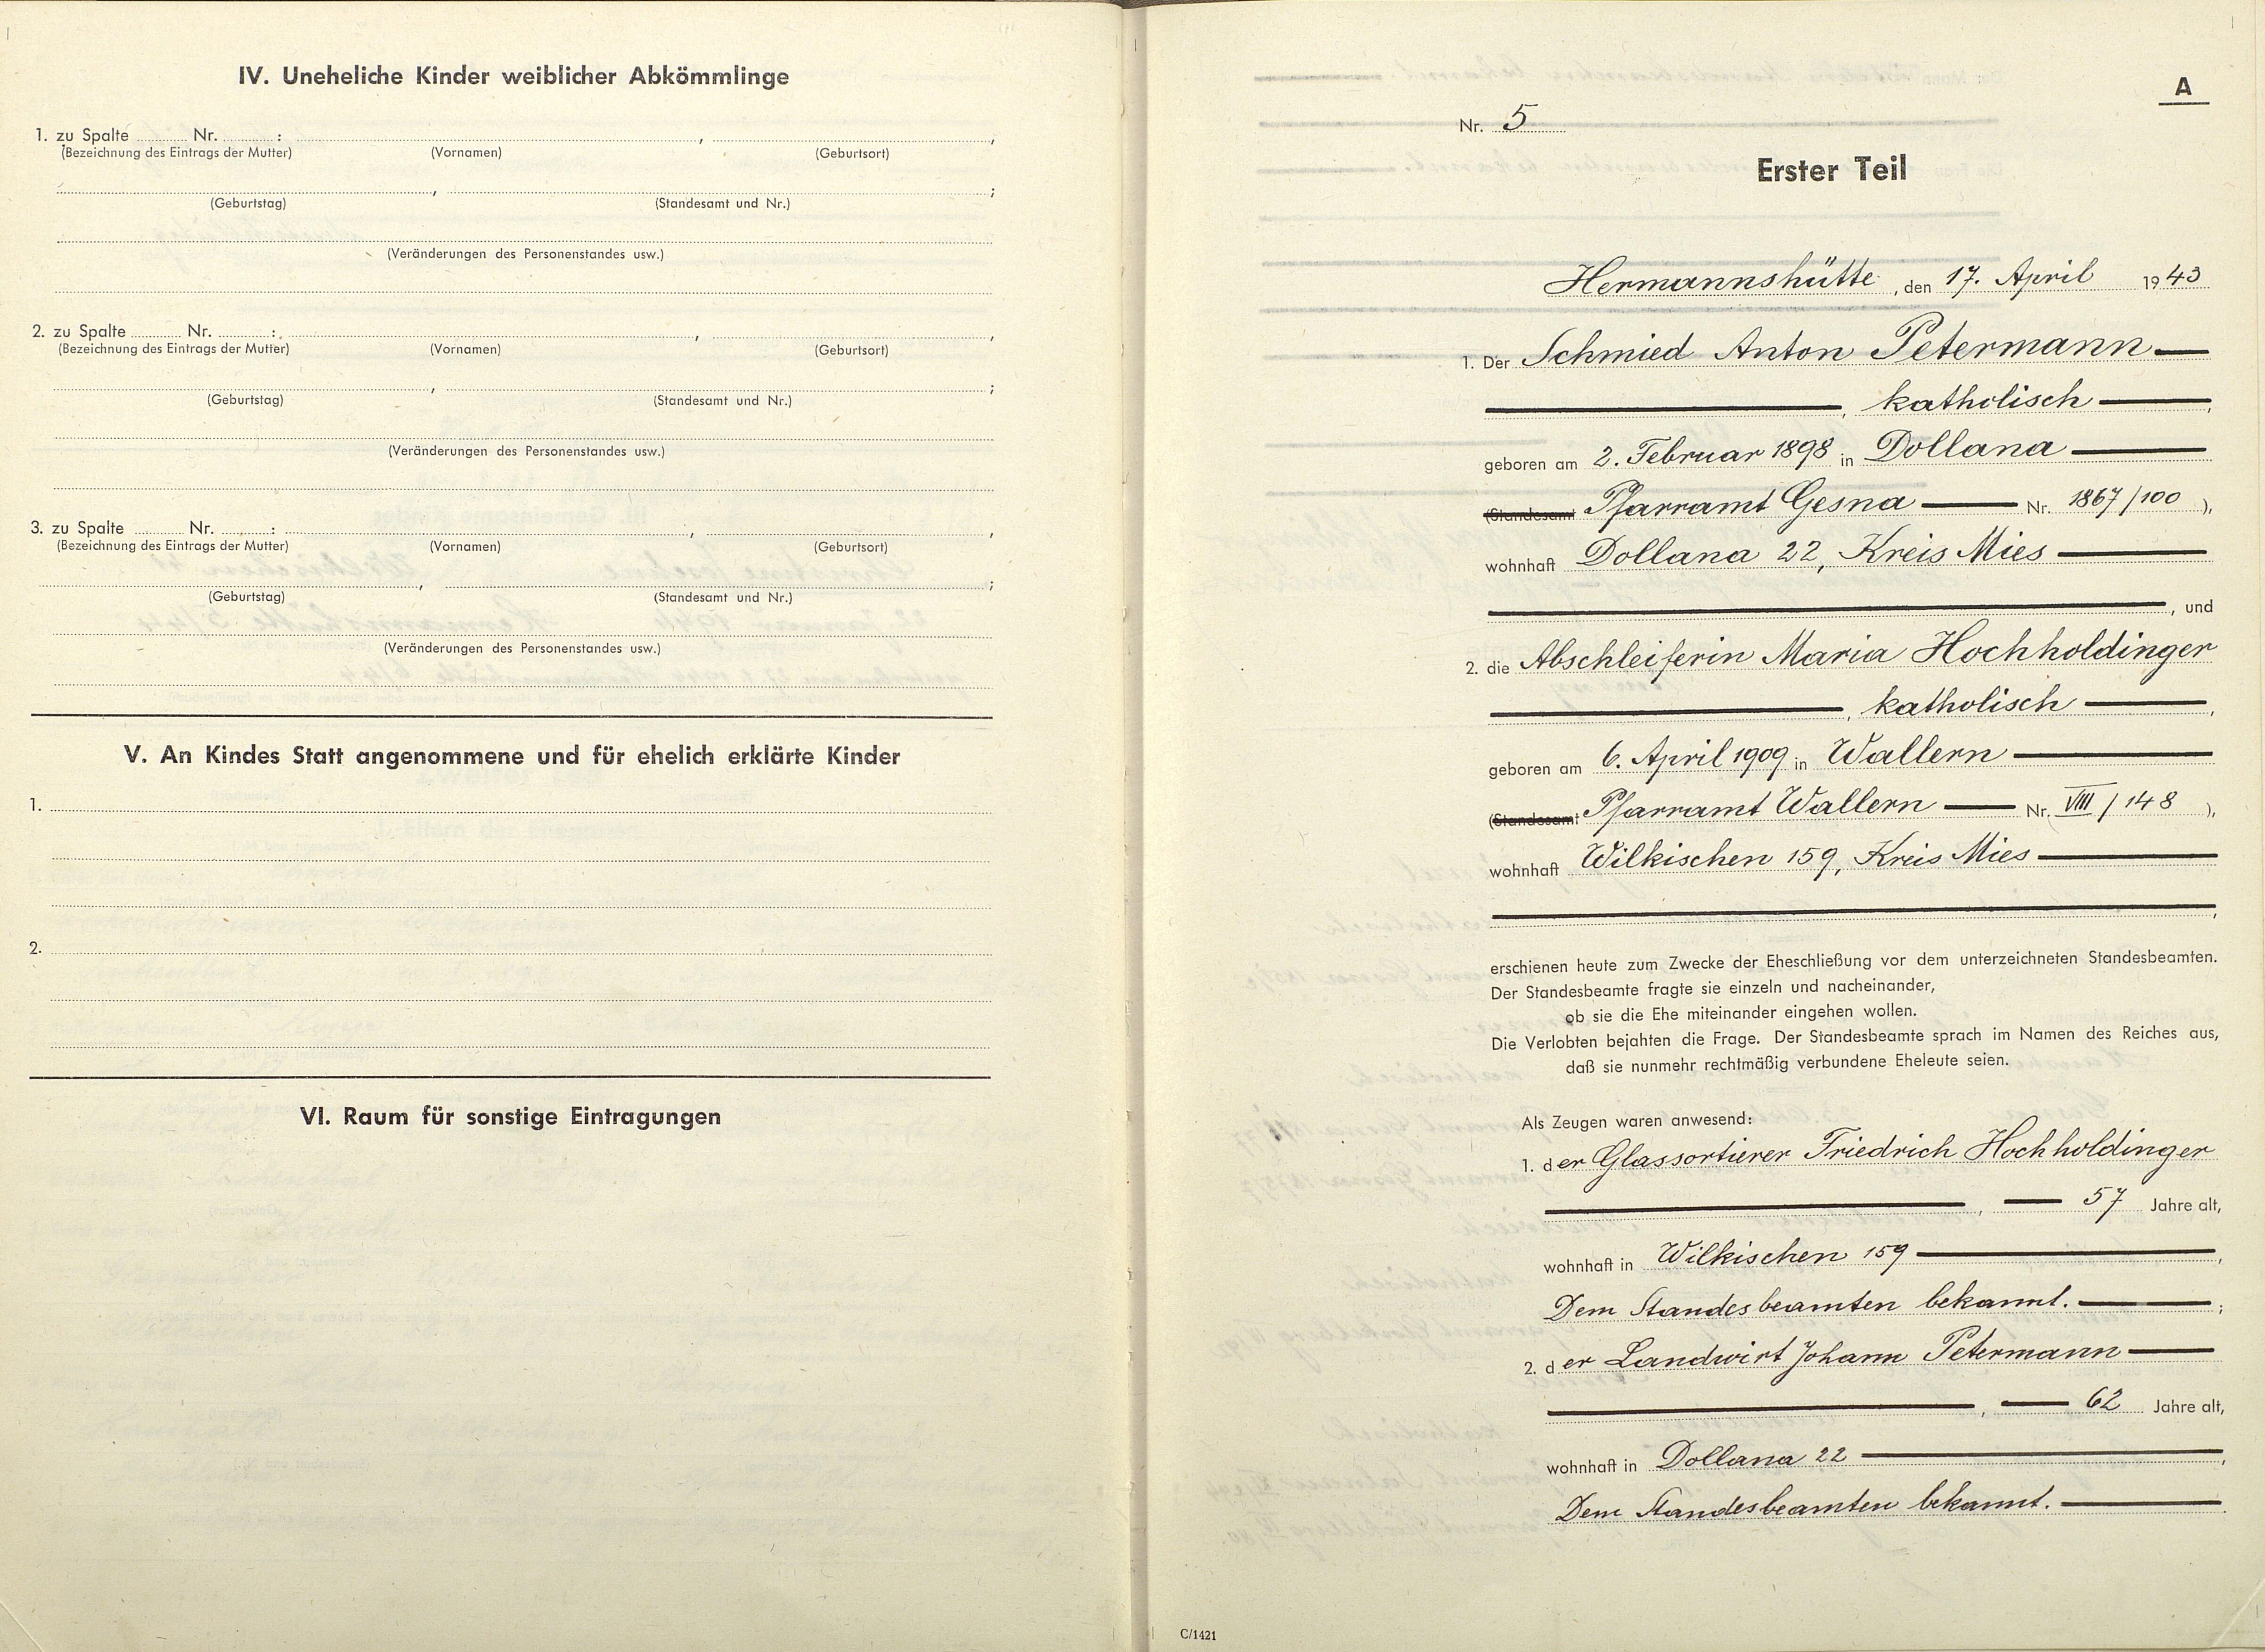 IV. Uneheliche Kinder weiblicher Abkömmlinge
1. zu Spalte ........ Nr. ........ :
(Bezeichnung des Eintrags der Mutter) (Vornamen) , (Geburtsort) ,
(Geburtstag) , (Standesamt und Nr.) ;
(Veränderungen des Personenstandes usw.)
2. zu Spalte ........ Nr. ........ :
(Bezeichnung des Eintrags der Mutter) (Vornamen) , (Geburtsort) ,
(Geburtstag) , (Standesamt und Nr.) ;
(Veränderungen des Personenstandes usw.)
3. zu Spalte ........ Nr. ........ :
(Bezeichnung des Eintrags der Mutter) (Vornamen) , (Geburtsort) ,
(Geburtstag) , (Standesamt und Nr.) ;
(Veränderungen des Personenstandes usw.)
V. An Kindes Statt angenommene und für ehelich erklärte Kinder
1.
2.
VI. Raum für sonstige Eintragungen
A
Nr. 5
Erster Teil
Hermannshütte, den 17. April 1943
1. Der Schmied Anton Petermann
, katholisch ,
geboren am 2. Februar 1898 in Dollana
(Standesamt Pfarramt Gesna Nr. 1867/100 ),
wohnhaft Dollana 22, Kreis Mies
, und
2. die Abschleiferin Maria Hochholdinger
, katholisch ,
geboren am 6. April 1909 in Wallern
(Standesamt Pfarramt Wallern Nr. VIII/148 ),
wohnhaft Wilkischen 159, Kreis Mies
,
erschienen heute zum Zwecke der Eheschließung vor dem unterzeichneten Standesbeamten.
Der Standesbeamte fragte sie einzeln und nacheinander,
ob sie die Ehe miteinander eingehen wollen.
Die Verlobten bejahten die Frage. Der Standesbeamte sprach im Namen des Reiches aus,
daß sie nunmehr rechtmäßig verbundene Eheleute seien.
Als Zeugen waren anwesend:
1. der Glassortierer Friedrich Hochholdinger
, 57 Jahre alt,
wohnhaft in Wilkischen 159 ,
Dem Standesbeamten bekannt. ;
2. der Landwirt Johann Petermann
, 62 Jahre alt,
wohnhaft in Dollana 22 ,
Dem Standesbeamten bekannt. .
C/1421